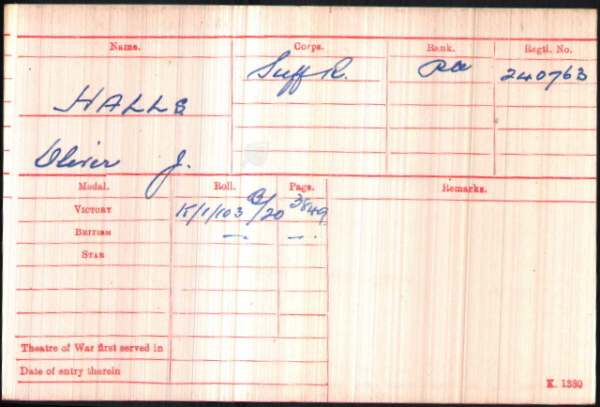 Name. Corps. Rank. Regtl. No.
Suff R. Pte 240763
HALLS
Oliver J.
Medal. Roll. Page. Remarks.
VICTORY K/1/103 B/20 3849
BRITISH — do — — do —
STAR
Theatre of War first served in
Date of entry therein
K. 1380